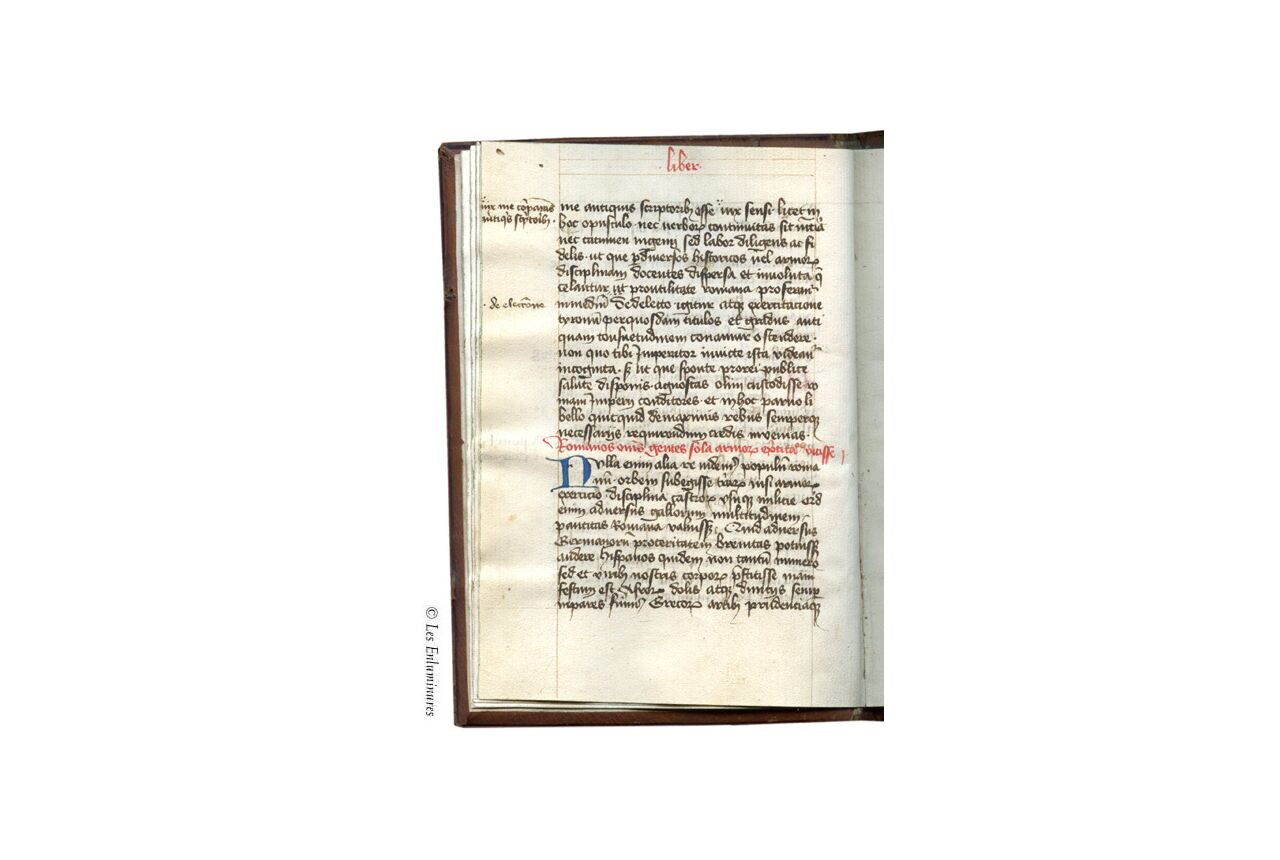 ·liber·
me antiquis scriptorib; esse
vix sensi· licet in
hoc opusculo nec verborꝝ continuitas sit
nec acumen ingenij sed labor diligens ac fi
delis· ut que historicos vel armorꝝ
disciplinam docentes dispersa et involuta
celantur ut proutilitate romana proferant᷑
inmediū De delectu igitur atqꝫ exercitacione
tyronum perquosdam titulos et gradus anti
quam consuetudinem conamur ostendere·
non quo tibi Imperator invicte ista videant᷑
incognita· ut que sponte prorei publice
salute disponis· agnoscas olim custodisse ro
mani Imperij conditores· et inhoc parvo li
bello quicquid demaximis rebus semperqꝫ
necessarijs requirendum credis invenias·
Romanos gentes sola armorꝝ vicisse
Nulla enim alia re videmꝰ populū roma
nū orbem subegisse nisi armorꝝ
exercicio disciplina castrorꝝ usuqꝫ milicie Quid
enim adversus gallorum multitudinem
paucitas Romana valuisset Quid adversus
Germanorū proceritatem brevitas potuisset
audere hispanos quidem non tantū numero
sed et virib; nostris corporꝝ prestitisse mani
festum est dolis atqꝫ divitijs semper
impares fuimꝰ Grecorꝝ artib; prudenciaqꝫ
vix me
antiqꝰs
· de eleccione
© Les Enluminures